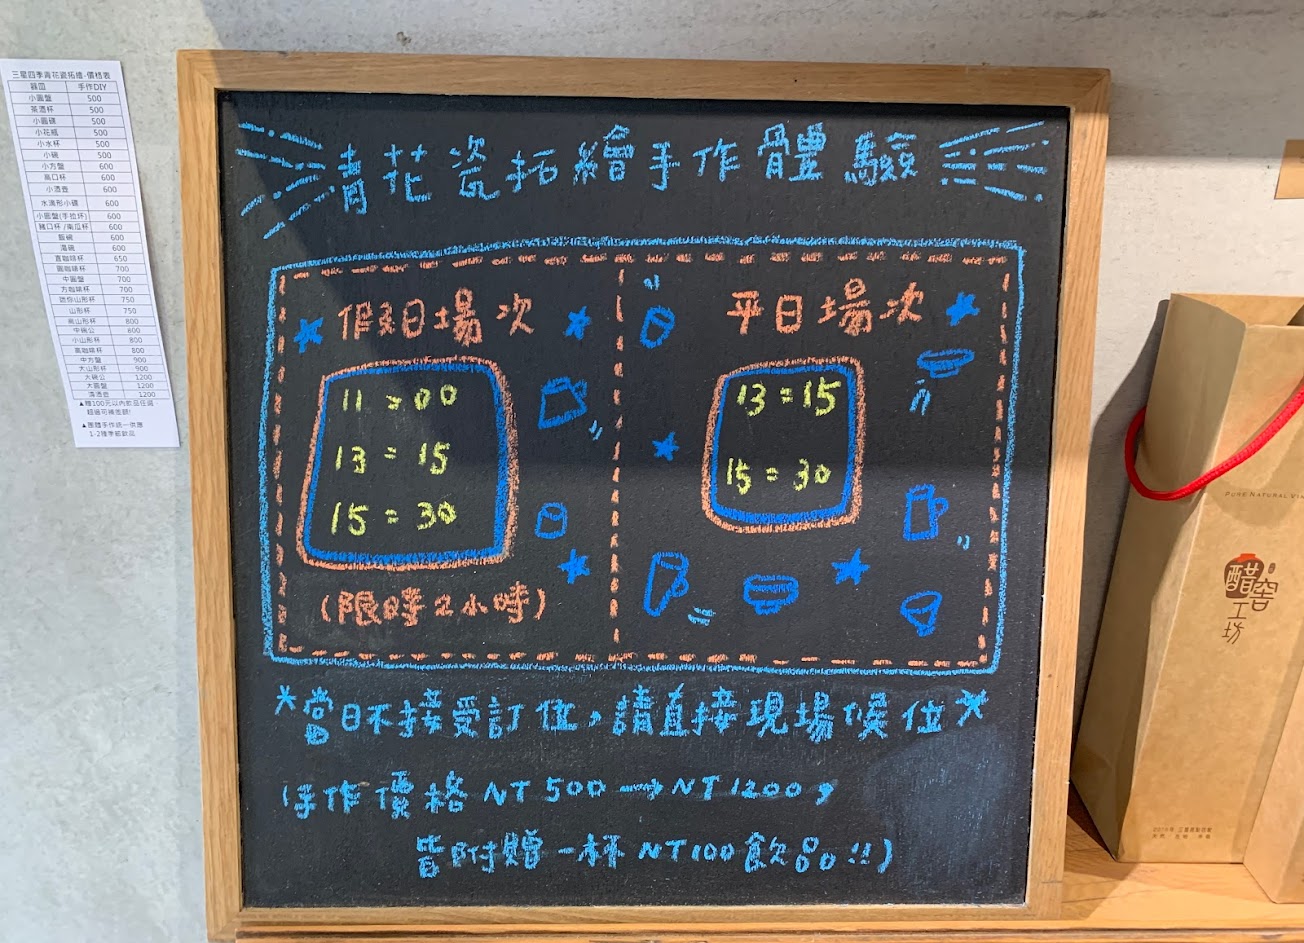 三星四季青花瓷拓繪-價格表
器皿 手作DIY
小圓盤 500
茶酒杯 500
小圓碟 500
小花瓶 500
小水杯 500
小碗 500
小方盤 600
高口杯 600
小酒壺 600
水滴形小碟 600
小圓盤(手拉坏) 600
豬口杯/南瓜杯 600
飯碗 600
湯碗 600
直咖啡杯 650
圓咖啡杯 700
中圓盤 700
方咖啡杯 700
迷你山形杯 750
山形杯 750
高山形杯 800
中碗公 800
小山形杯 800
高咖啡杯 800
中方盤 900
大山形杯 900
大碗公 1200
大圓盤 1200
清酒壺 1200
▲贈100元以內飲品任選
超過可補差額!
▲團體手作統一供應
1-2種季節飲品
青花瓷拓繪手作體驗
假日場次
11:00
13:15
15:30
(限時2小時)
平日場次
13:15
15:30
*當日不接受訂位,請直接現場候位*
(手作價格NT500→NT1200,
皆附贈一杯NT100飲品!!)
PURE NATURAL
醋窖
工坊